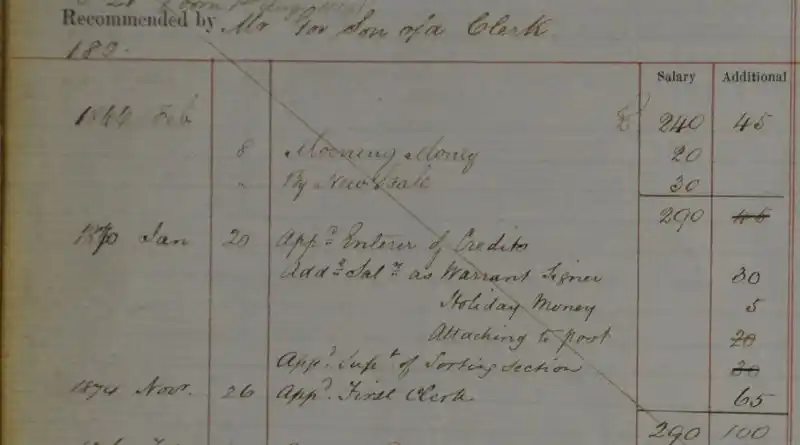 Recommended by Mr Gov Son of a Clerk
Salary Additional
1866 Feb £ 240 45
8 Morning Money 20
" By New Scale 30
290 45
1870 Jan 20 Appd Enterer of Credits
Addl Saly as Warrant Signer 30
Holiday Money 5
Attaching to post 20
Appd Supt of Sorting Section 30
1874 Novr. 26 Appd First Clerk 65
290 100